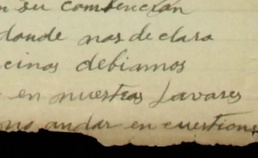 su convención
donde nos declara
cinos debiamos
en nuestros Lavares
no andar en cuestione